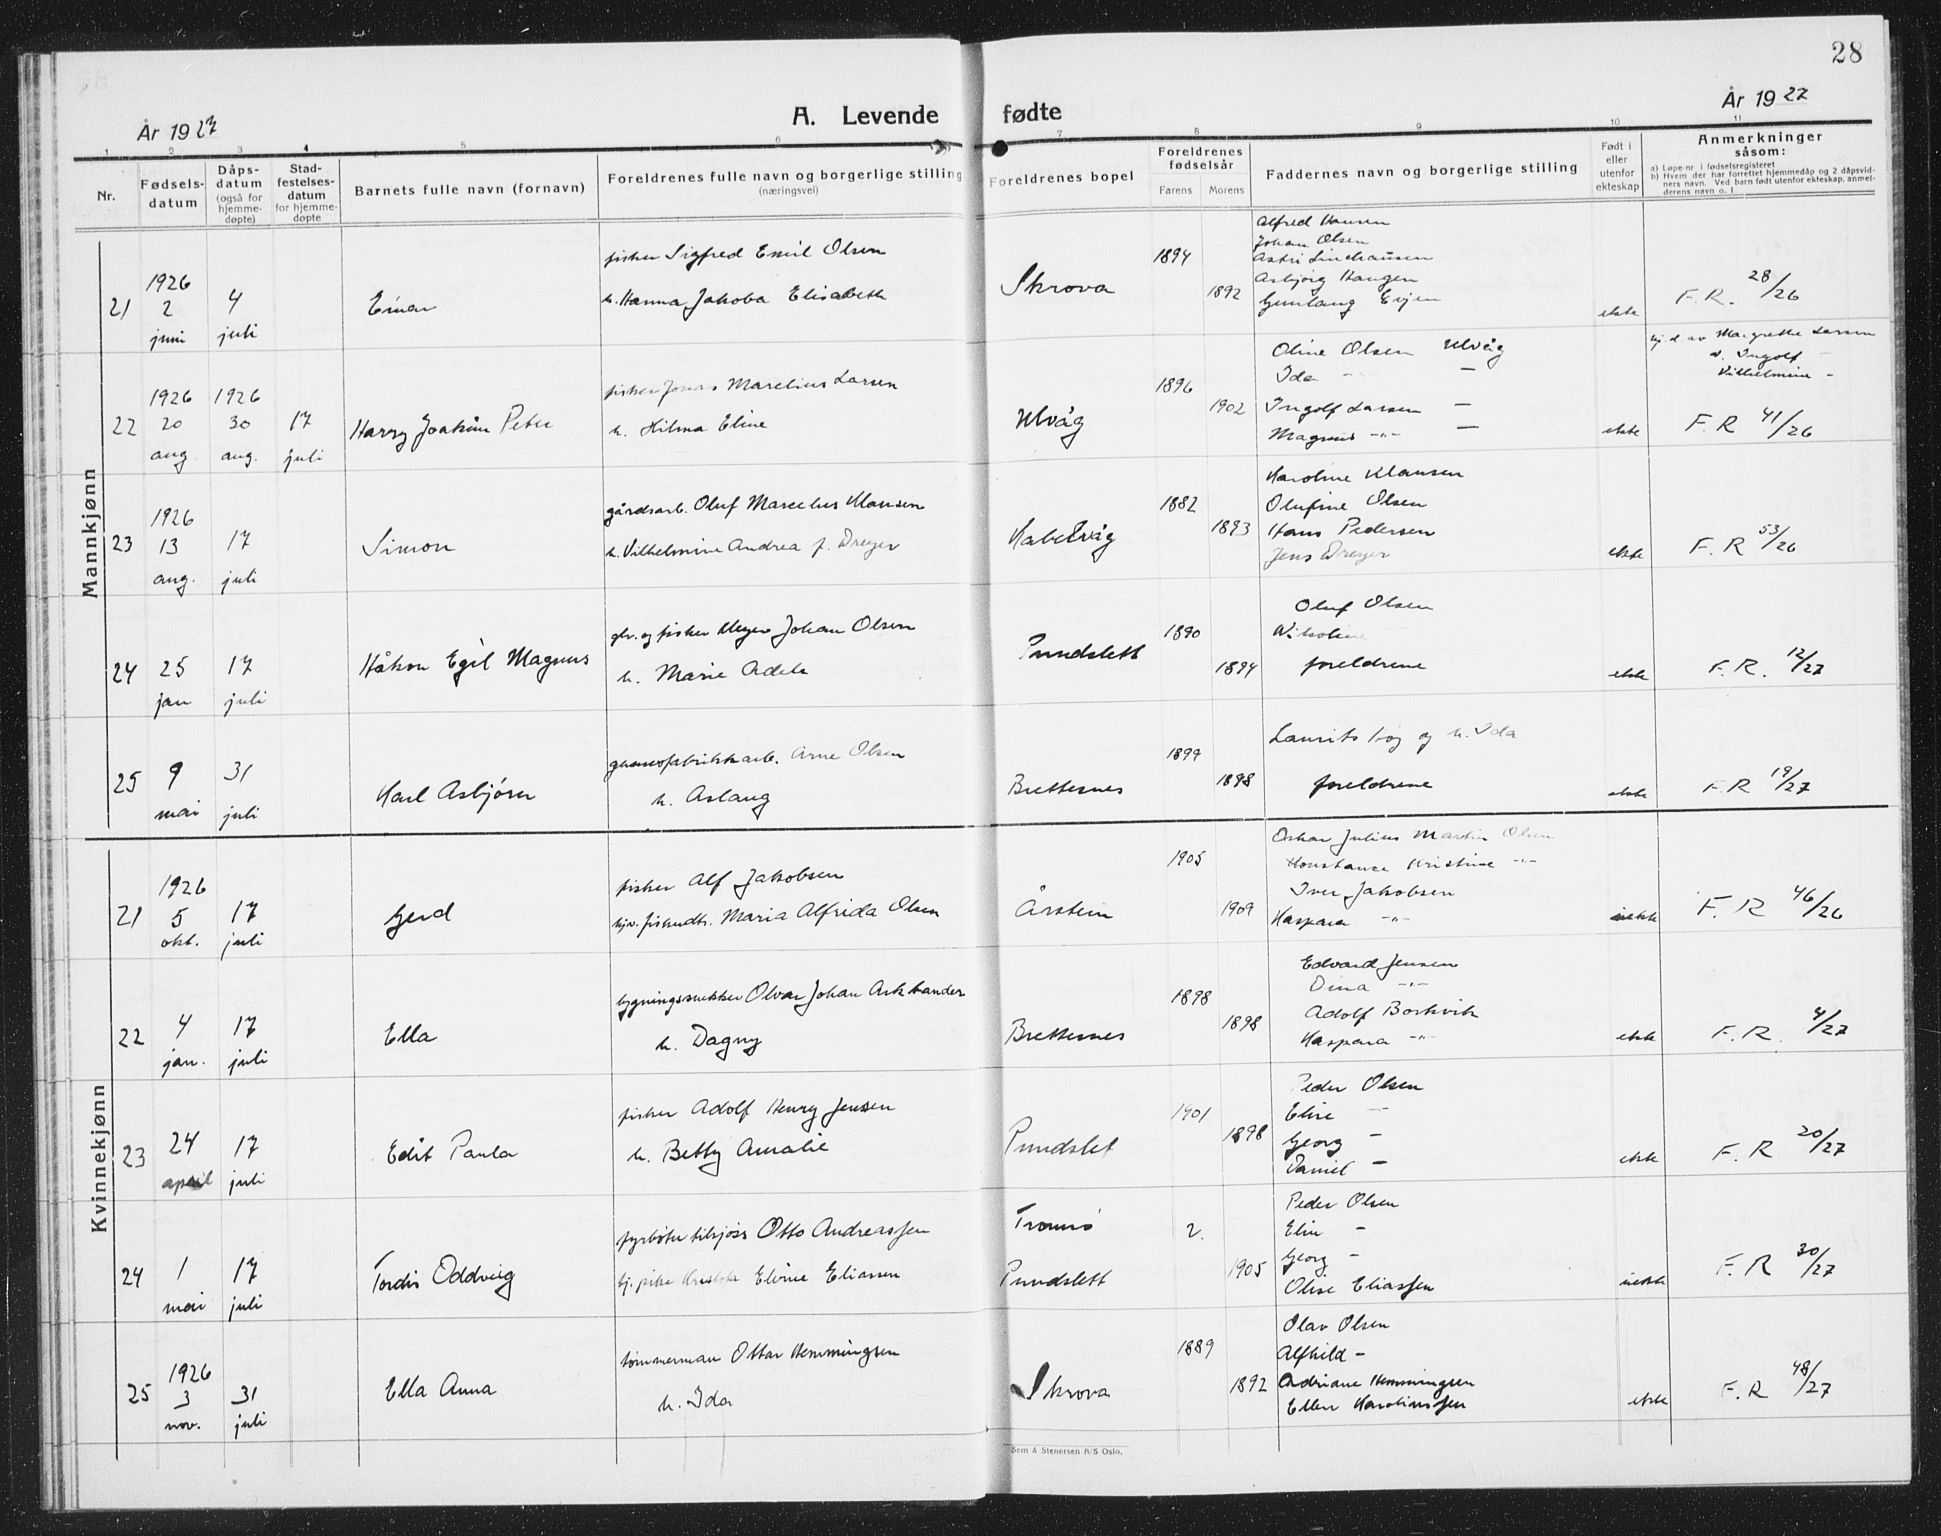 28
År 1927
A. Levende fødte
År 1927
1 2 3 4 5 6 7 8 9 10 11
Nr.
Fødsels-
datum
Dåps-
datum
(også for
hjemme-
døpte)
Stad-
festelses-
datum
for hjemme-
døpte
Barnets fulle navn (fornavn)
Foreldrenes fulle navn og borgerlige stilling
(næringsvei)
Foreldrenes bopel
Foreldrenes
fødselsår
Farens Morens
Faddernes navn og borgerlige stilling
Født i
eller
utenfor
ekteskap
Anmerkninger
såsom:
a) Løpe-nr. i fødselsregisteret
b) Hvem der har forrettet hjemmedåp og 2 dåpsvid-
ners navn. Ved barn født utenfor ekteskap, anmel-
derens navn o. l.
Mannkjønn
21
1926
2
juni
4
juli
Einar
fisker Sigfred Emil Olsen
h. Hanna Jakoba Elisabeth
Skrova
1894
1892
Alfred Hansen
Johan Olsen
Astri Linchausen
Asbjørg Haugen
Gunlaug Evjen
ekte
F. R. 28/26
22
1926
20
aug.
1926
30
aug.
17
juli
Harry Joakim Peter
fisker Jonas Marelius Larsen
h. Hilma Eline
Ulvåg
1896
1902
Oline Olsen Ulvåg
Ida -"- —
Ingolf Larsen —
Magnus -"- —
ekte
hj. d. av Margrethe Larsen
v. Ingolf —
Vilhelmine -
F. R 41/26
23
1926
13
aug.
17
juli
Simon
gårdsarb. Oluf Marelius Klausen
h. Vilhelmine Andrea f. Dreyer
Kabelvåg
1882
1893
Karoline Klausen
Olufine Olsen
Hans Pedersen
Jens Dreyer
ekte
F. R 53/26
24
25
jan
17
juli
Håkon Egil Magnus
gbr. og fisker Meyer Johan Olsen
h. Marie Adele
Pundslett
1890
1894
Oluf Olsen
Nikoline
foreldrene
ekte
F. R. 12/27
25
9
mai
31
juli
Karl Asbjørn
guanofabrikkarb. Arne Olsen
h. Aslaug
Brettesnes
1899
1898
Laurits Høg og h. Ida
foreldrene
ekte
F. R 19/27
Kvinnekjønn
21
1926
5
okt.
17
juli
Gerd
fisker Alf Jakobsen
Maria Alfrida Olsen
Årstein
1905
1909
Oskar Julius Martin Olsen
Konstance Kristine -"-
Iver Jakobsen
Kaspara -"-
uekte
F. R 46/26
22
4
jan.
17
juli
Ella
bygningssnekker Olvar Johan Arkhander
h. Dagny
Brettesnes
1898
1898
Edvard Jensen
Dina -"-
Adolf Borkvik
Kaspara -"-
ekte
F. R. 4/27
23
24
april
17
juli
Edit Paula
fisker Adolf Henry Jensen
h. Betty Amalie
Pundslet
1901
1898
Peder Olsen
Eline -
Georg -
Daniel -
ekte
F. R 20/27
24
1
mai
17
juli
Tordis Oddveig
fyrbøter tilsjøss Otto Andreassen
Elvine Eliassen
Tromsø
Pundslett
2.
1905
Peder Olsen
Elin -
Georg -
Olise Eliassen
uekte
F. R 30/27
25
1926
3
nov.
31
juli
Ella Anna
tømmerman Ottar Hemmingsen
h. Ida
Skrova
1889
1892
Olav Olsen
Alfhild -
Adriane Hemmingsen
Ellen Karolinssen
ekte
F. R 48/27
Sem & Stenersen A/S Oslo.